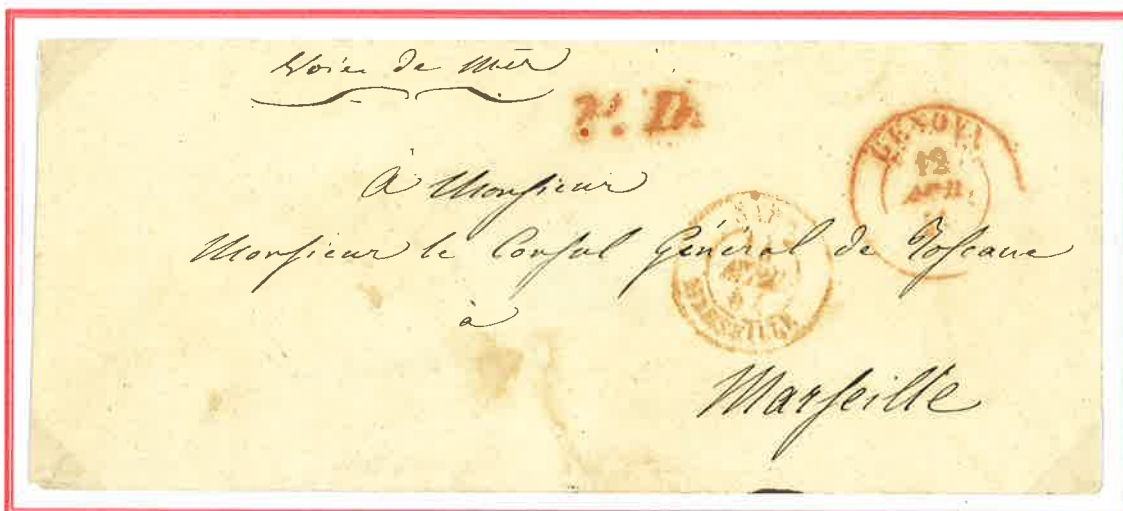 Voie de Mer
P. D.
GENOVA
12
APR.
À Monsieur
Monsieur le Consul Général de Toscane
MARSEILLE
à
Marseille